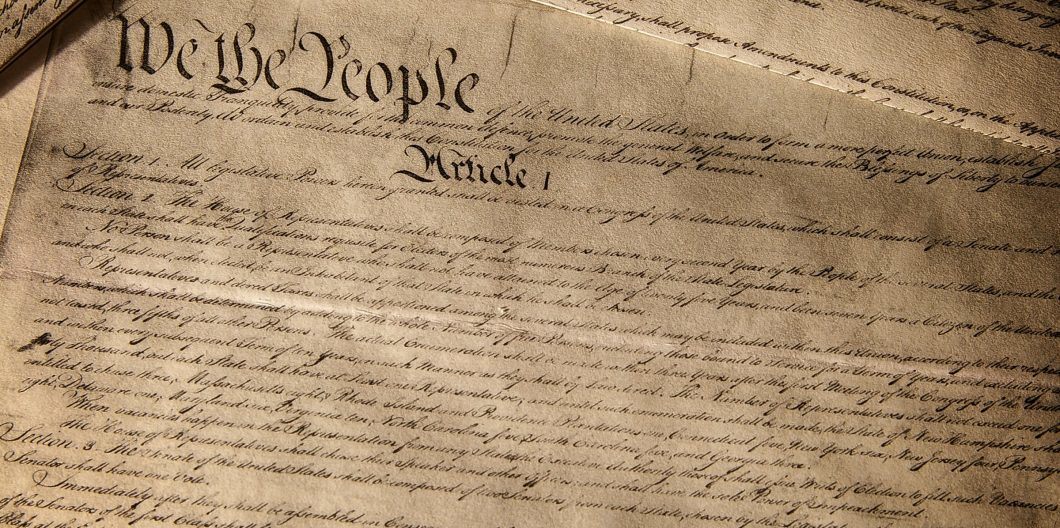 shall propose Amendments to this Constitution, or, on the Applica
We the People of the United States, in Order to form a more perfect Union, establish
insure domestic Tranquility, provide for the common defence, promote the general Welfare, and secure the Blessings of Liberty to
and our Posterity, do ordain and establish this Constitution for the United States of America.
Article 1
Section 1. All legislative Powers herein granted shall be vested in a Congress of the United States, which shall consist of a Senate and
of Representatives.
Section 2. The House of Representatives shall be composed of Members chosen every second Year by the People of the several States, and the
in each State shall have the Qualifications requisite for Electors of the most numerous Branch of the State Legislature.
No Person shall be a Representative who shall not have attained to the Age of twenty five Years, and been seven Years a Citizen of the United
and who shall not, when elected, be an Inhabitant of that State in which he shall be chosen.
Representatives and direct Taxes shall be apportioned among the several States which may be included within this Union, according to their respec
Numbers, which shall be determined by adding to the whole Number of free Persons, including those bound to Service for a Term of Years, and excluding
not taxed, three fifths of all other Persons. The actual Enumeration shall be made within three Years after the first Meeting of the Congress of the
and within every subsequent Term of ten Years, in such Manner as they shall by Law direct. The Number of Representatives shall not exceed one for
thirty Thousand, but each State shall have at Least one Representative; and until such enumeration shall be made, the State of New Hampshire
entitled to chuse three, Massachusetts eight, Rhode Island and Providence Plantations one, Connecticut five, New York six, New Jersey four, Pennsyl
eight, Delaware one, Maryland six, Virginia ten, North Carolina five, South Carolina five, and Georgia three.
When vacancies happen in the Representation from any State, the Executive Authority thereof shall issue Writs of Election to fill such Vacancies.
The House of Representatives shall chuse their Speaker and other Officers; and shall have the sole Power of Impeachment.
Section. 3. The Senate of the United States shall be composed of two Senators from each State, chosen by the
Senator shall have one Vote.
Immediately after they shall be assembled in
of the Senators of the first Class shall